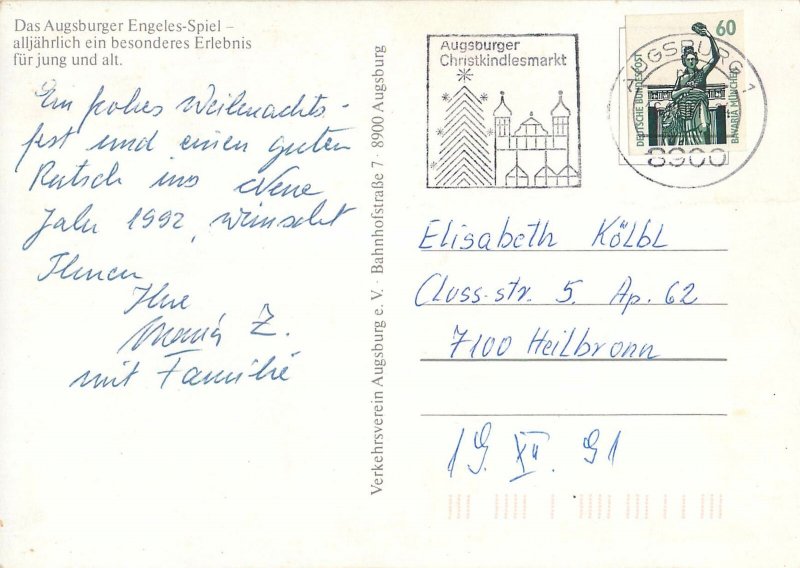 Das Augsburger Engeles-Spiel –
alljährlich ein besonderes Erlebnis
für jung und alt.
Ein frohes Weihnachts-
fest und einen guten
Rutsch ins Neue
Jahr 1992, wünscht
Ihnen
Ihre
Maria Z.
mit Familie
Verkehrsverein Augsburg e. V. · Bahnhofstraße 7 · 8900 Augsburg
Augsburger
Christkindlesmarkt
AUGSBURG 1
8900
60
DEUTSCHE BUNDESPOST
BAVARIA MÜNCHEN
Elisabeth Kölbl
Cluss-str. 5. Ap. 62
7100 Heilbronn
19. XII. 91